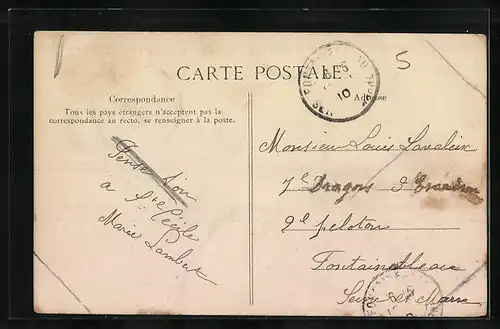 5
CARTE POSTALE
Correspondance
Tous les pays étrangers n'acceptent pas la
correspondance au recto, se renseigner à la poste.
Adresse
10
Pense t'on
à Ste Cécile
Marie Lambert
Monsieur Louis Lavaleix
7e Dragons 3e Escadron
2e peloton
Fontainebleau
Seine et Marne